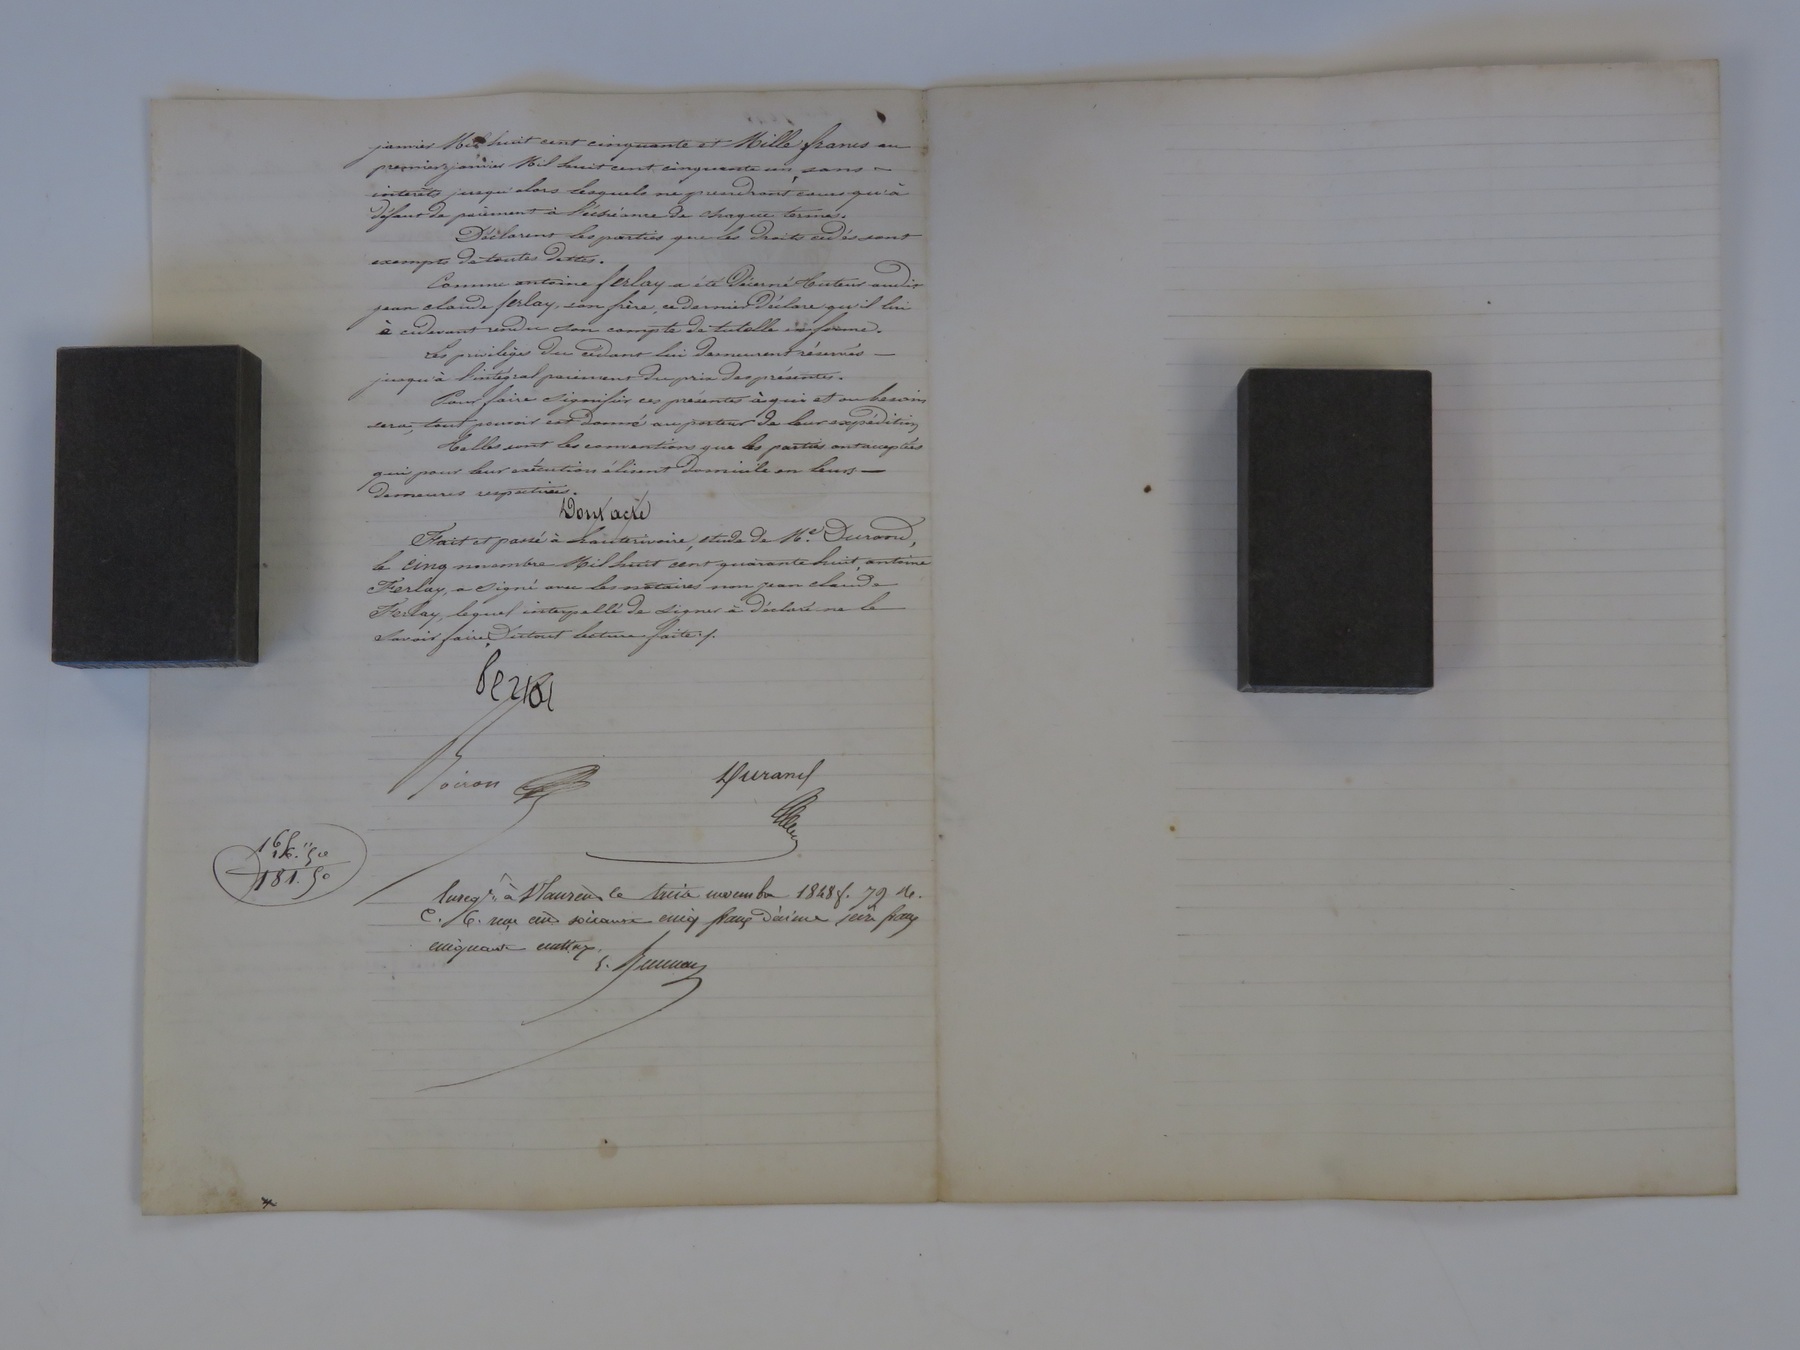 janvier Mil huit cent cinquante et Mille francs au
premier janvier Mil huit cent cinquante un, sans
interets jusqu'alors lesquels ne prendront cours qu'à
défaut de paiement à l'échéance de chaque terme.
Déclarent les parties que les droits cédés sont
exempts de toutes dettes.
Comme antoine ferlay a été décerné tuteur audit
jean claude ferlay, son frère, ce dernier déclare qu'il lui
a cidevant rendu son compte de tutelle en forme.
Les privilèges du cédant lui demeurent réservés
jusqu'à l'intégral paiement du prix des présentes.
Pour faire signifier ces présentes à qui et ou besoin
sera, tout pouvoir est donné au porteur de leur expédition
Telles sont les convention que les parties ont acceptées
qui pour leur exécution élisent domicile en leurs
demeures respectives.
Dont acte
Fait et passé à hauterivoire, étude de Me Durand,
le cinq novembre Mil huit cent quarante huit, antoine
Ferlay, a signé avec les notaires non jean claude
Ferlay, lequel interpellé de signer à déclaré ne le
savoir faire, du tout lecture faite ./.
ferlai
Voiron
Durand
165. "
16. 50
181. 50
Enregré à St Laurent le treize novembre 1848 f. 79 Ro.
C. 6. reçu cent soixante cinq francs décime seize francs
cinquante centimes.